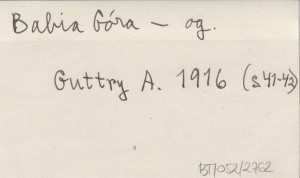 Babia Góra - og.
Guttry A. 1916 (s 41-42)
BT/052/2762